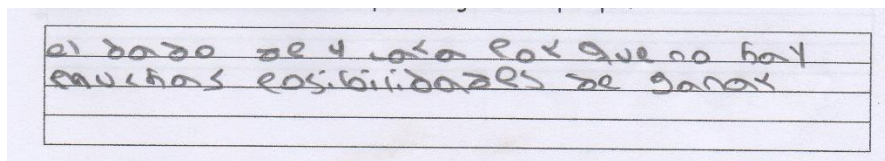 el dado de 4 cara por que no hay
muchas posibilidades de ganar